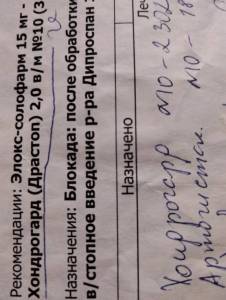 Рекомендации: Элокс-солофарм 15 мг -
Хондрогард (Драстоп) 2,0 в/м №10 (3
Назначения: Блокада: после обработки
в/стопное введение р-ра Дипроспан
Назначено
Леч
Хондрогард МО-2302
МО - 18